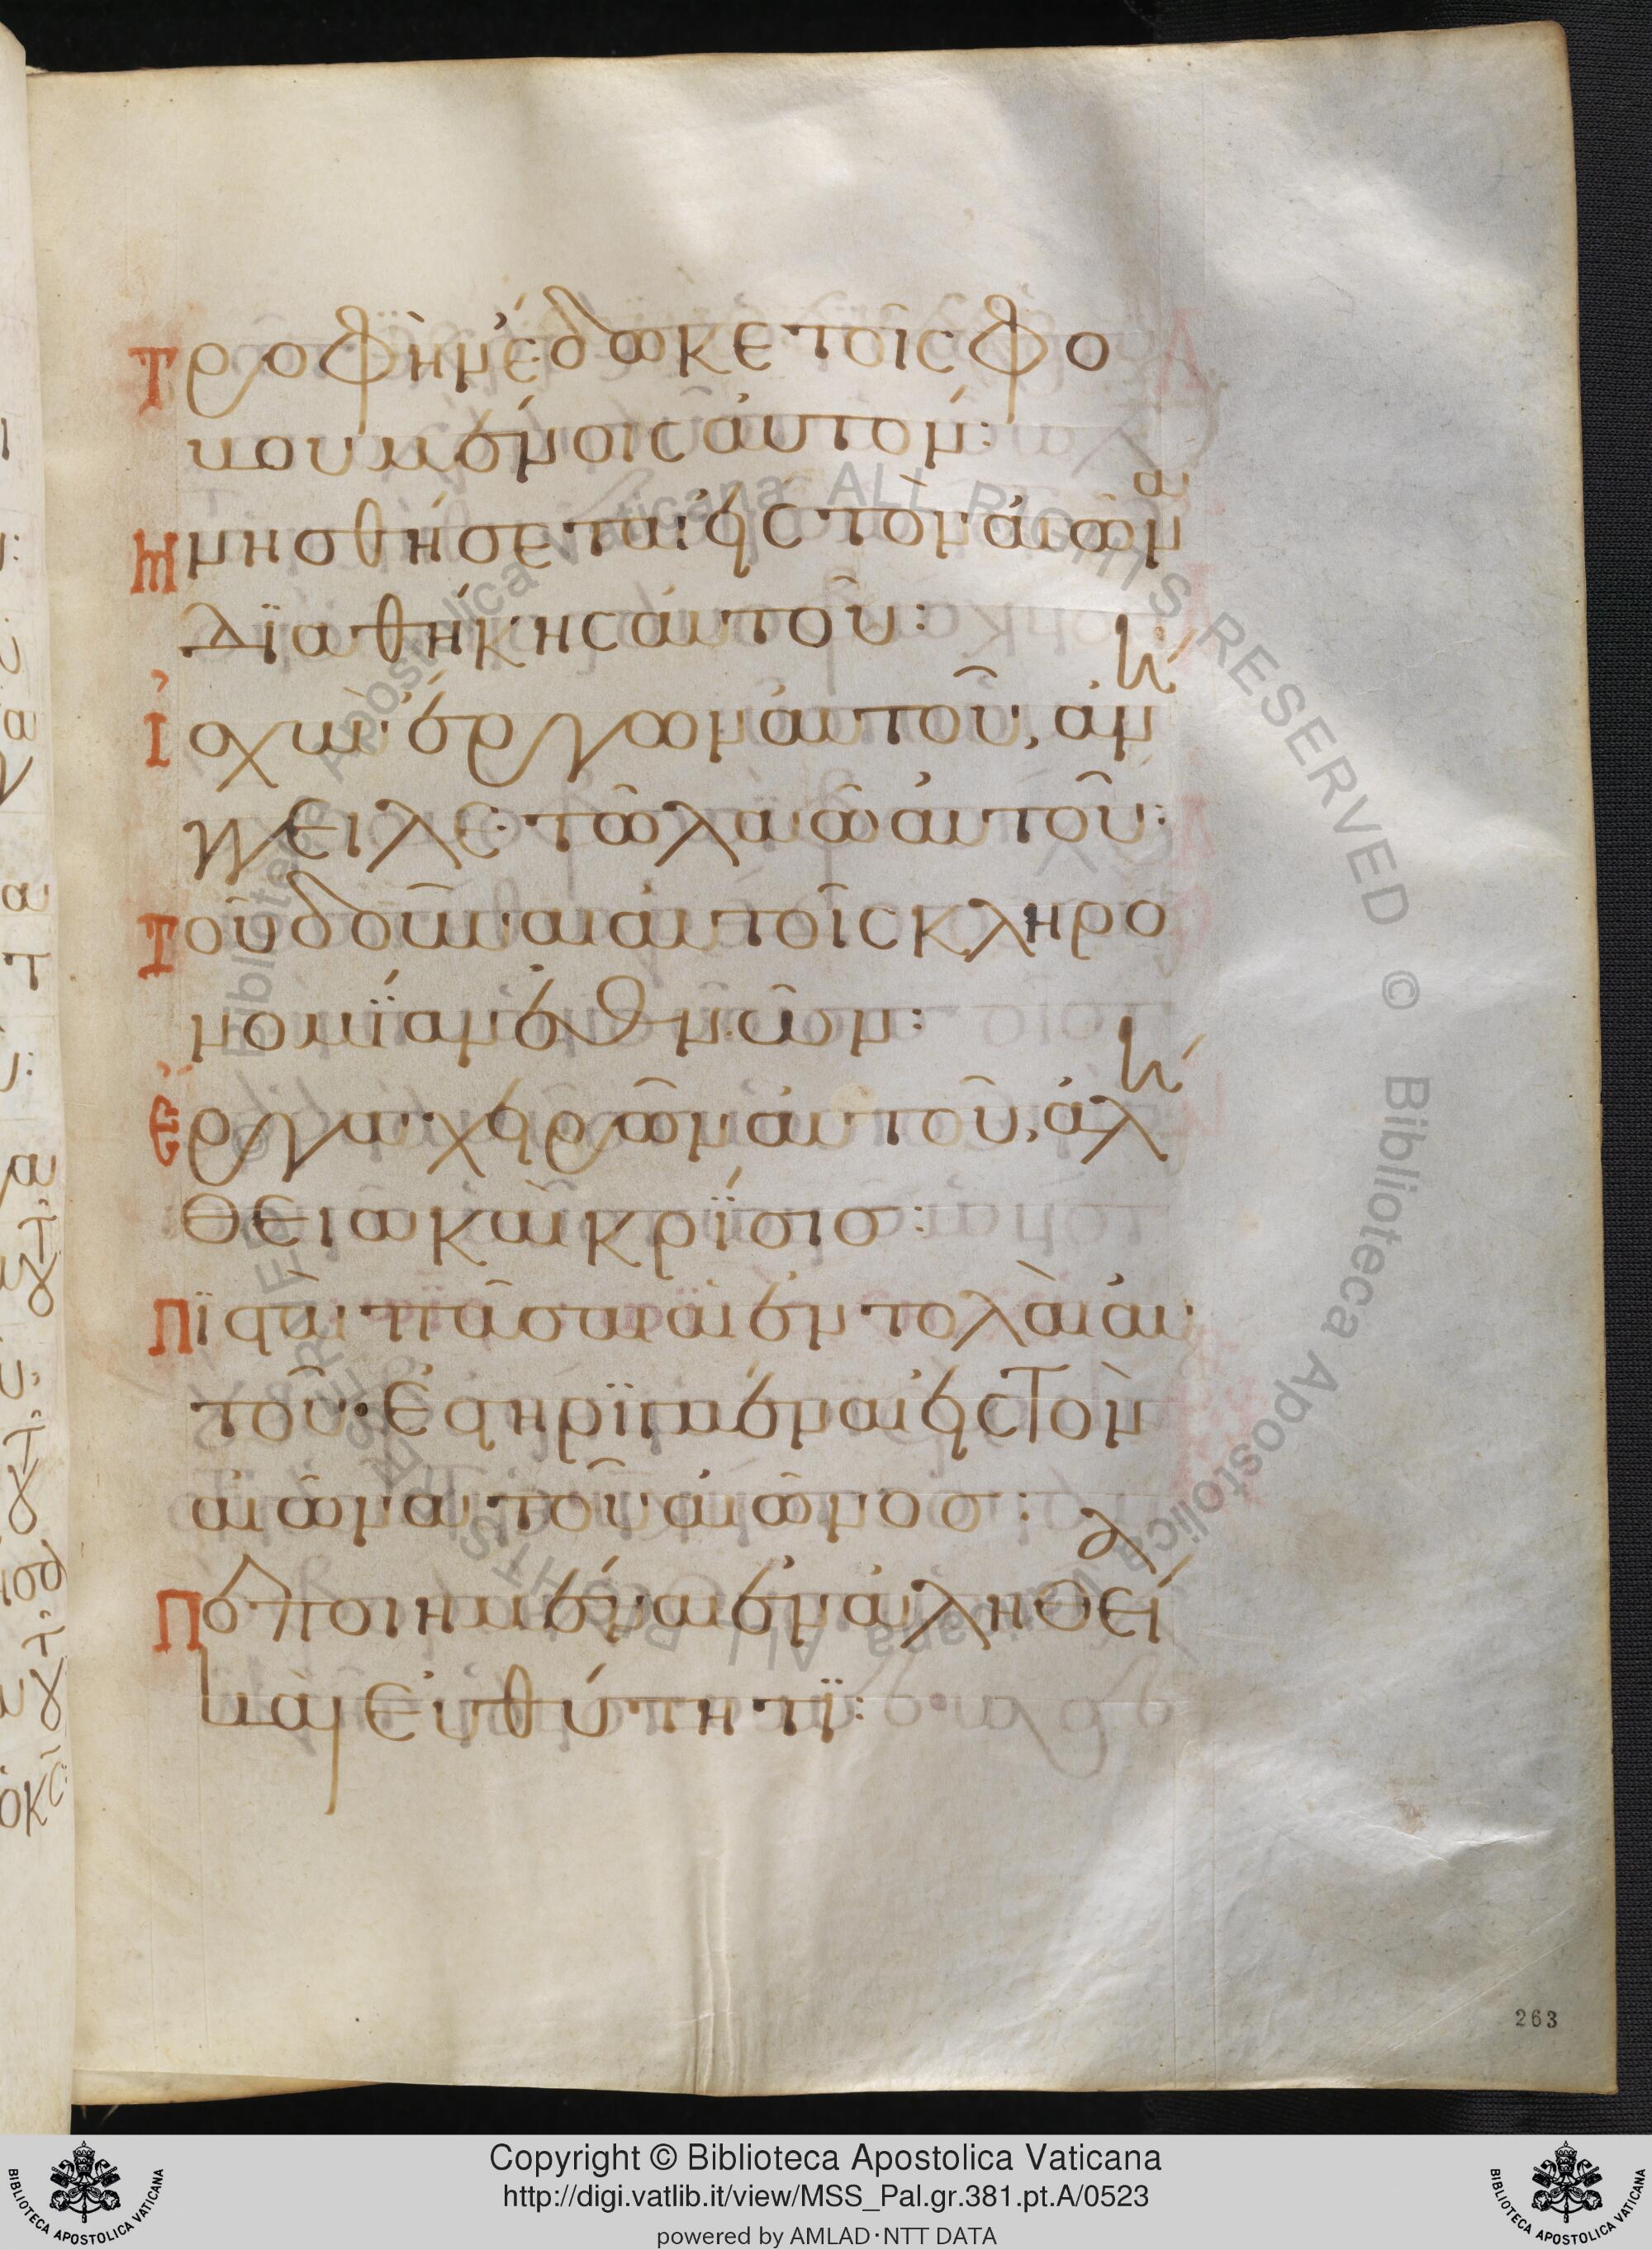 Τροφὴν ἔδωκε τοῖς φο
βουμένοις αὐτόν:
Μνησθήσεται εἰς τὸν αἰῶνα
διαθήκης αὐτοῦ:
Ἰσχὺν ἔργων αὐτοῦ, ἀνή
γγειλε τῶ λαῶ αὐτοῦ:
Τοῦ δοῦναι αὐτοῖς κληρο
νομίαν ἐθνῶν:
Ἔργα χειρῶν αὐτοῦ, ἀλή
θεια καὶ κρίσισ:
Πισταὶ πᾶσαι αἱ ἐντολαὶ αὐ
τοῦ· Ἐστηριγμέναι εἰς τὸν
αἰῶνα τοῦ αἰῶνοσ:
Πεποιημέναι ἐν ἀληθεία
καὶ εὐθύτητι:
263
Biblioteca Apostolica Vaticana ALL RIGHTS RESERVED ©
Biblioteca Apostolica Vaticana ALL RIGHTS RESERVED ©
Copyright © Biblioteca Apostolica Vaticana
http://digi.vatlib.it/view/MSS_Pal.gr.381.pt.A/0523
powered by AMLAD·NTT DATA
BIBLIOTECA APOSTOLICA VATICANA
BIBLIOTECA APOSTOLICA VATICANA